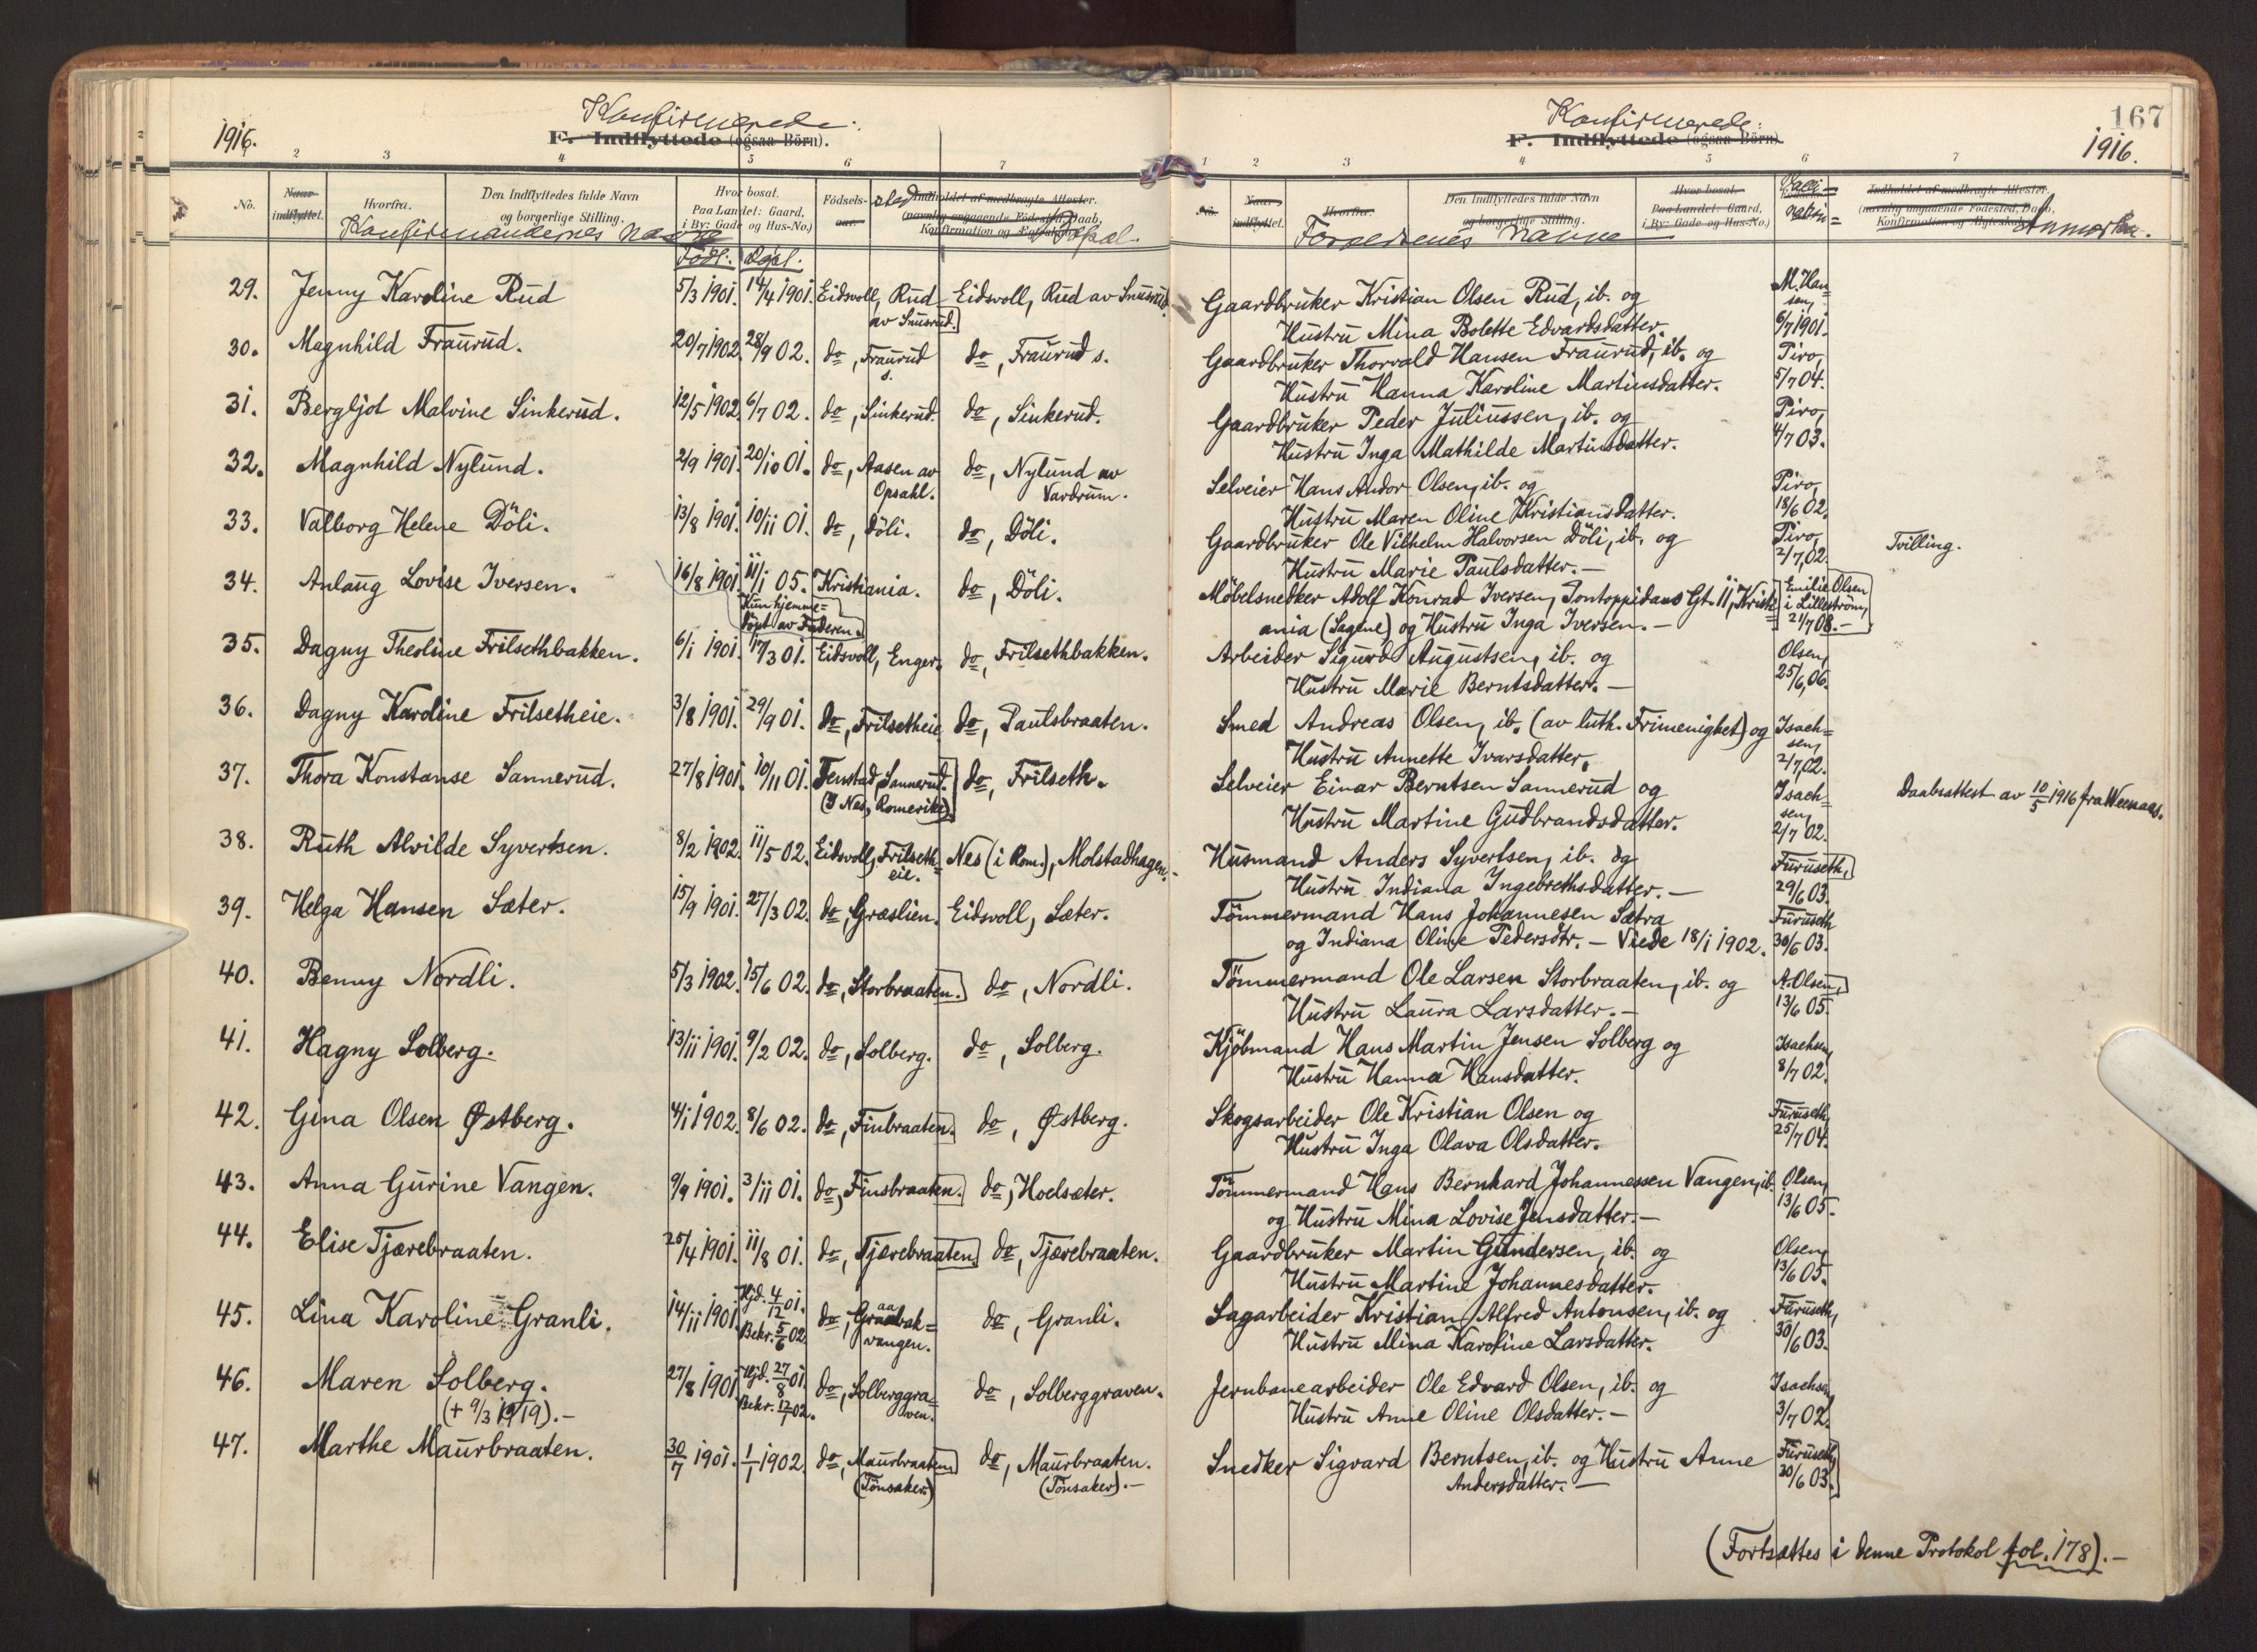 1916.
Konfirmerede:
F. Indflyttede (ogsaa Börn).
2 3 4 5 6 7
No. Naar indflyttet. Hvorfra. Den Indflyttedes fulde Navn og borgerlige Stilling. Hvor bosat. Paa Landet: Gaard, i By: Gade og Hus-No.) Fødsels-aar. sted Indholdet af medbragte Attester. (navnlig angaaende Fødested, Daab, Konfirmation og Ægteskab)
Konfirmandernes Navne Født: Døpt: Bopæl.
29. Jenny Karoline Rud 5/3 1901. 14/4 1901. Eidsvoll, Rud av Snusrud. Eidsvoll, Rud av Snusrud.
30. Magnhild Fraurud. 20/7 1902. 28/9 02. do, Fraurud s. do, Fraurud s.
31. Bergljot Malvine Sinkerud. 12/5 1902. 6/7 02. do, Sinkerud. do, Sinkerud.
32. Magnhild Nylund. 2/9 1901. 20/10 01. do, Aasen av Opsahl. do, Nylund av Vardrum.
33. Valborg Helene Döli. 13/8 1901. 10/11 01. do, Döli. do, Döli.
34. Anlaug Lovise Iversen. 16/8 1901. 11/1 05. Kristiania. do, Döli.
Kun hjemme=
döpt av Faderen.
35. Dagny Theoline Frilsethbakken. 6/1 1901. 17/3 01. Eidsvoll, Enger. do, Frilsethbakken.
36. Dagny Karoline Frilsetheie. 3/8 1901. 29/9 01. do, Frilsetheie do, Paulsbraaten.
37. Thora Konstanse Sannerud. 27/8 1901. 10/11 01. Tenstad, Sannerud. (I Nes, Romerike) do, Frilseth.
38. Ruth Alvilde Syvertsen. 8/2 1902. 11/5 02. Eidsvoll, Frilseth=eie. Nes (i Rom.), Molstadhagen.
39. Helga Hansen Sæter. 15/9 1901. 27/3 02. do, Græslien. Eidsvoll, Sæter.
40. Benny Nordli. 5/3 1902. 15/6 02. do, Storbraaten. do, Nordli.
41. Hagny Solberg. 13/11 1901. 9/2 02. do, Solberg. do, Solberg.
42. Gina Olsen Østberg. 4/1 1902. 8/6 02. do, Finbraaten. do, Østberg.
43. Anna Gurine Vangen. 9/9 1901. 3/11 01. do, Finsbraaten. do, Hoelsæter.
44. Elise Tjærebraaten. 25/4 1901. 11/8 01. do, Tjærebraaten. do, Tjærebraaten.
45. Lina Karoline Granli. 14/11 1901. Hjd. 4/12 01. Bekr. 5/6 02. do, Graabak=vangen. do, Granli.
46. Maren Solberg. 27/8 1901. Hjd. 27/8 01. Bekr. 12/1 02. do, Solberggra=ven. do, Solberggraven.
(+ 9/3 1919).-
47. Marthe Maurbraaten. 30/7 1901. 1/1 1902. do, Maurbraaten. (Tönsaker) do, Maurbraaten. (Tönsaker).-
167
1916.
Konfirmerede:
F. Indflyttede (ogsaa Börn).
1 2 3 4 5 6 7
No. Naar indflyttet. Hvorfra. Den Indflyttedes fulde Navn og borgerlige Stilling. Hvor bosat. Paa Landet: Gaard, i By: Gade og Hus-No.) Indholdet af medbragte Attester. (navnlig angaaende Fødested, Daab, Konfirmation og Ægteskab)
Forældrenes Navne
Gaardbruker Kristian Olsen Rud, ib. og M. Han=sen,
Hustru Mina Bolette Edvardsdatter. 6/7 1901.
Gaardbruker Thorvald Hansen Fraurud, ib. og Piro,
Hustru Hanna Karoline Martinsdatter. 5/7 04.
Gaardbruker Peder Juliussen, ib. og Piro,
Hustru Inga Mathilde Martinsdatter. 4/7 03.
Selveier Hans Andor Olsen, ib. og Piro,
Hustru Maren Oline Kristiansdatter. 18/6 02.
Gaardbruker Ole Vilhelm Halvorsen Döli, ib. og Piro, Tvilling.
Hustru Marie Paulsdatter.- 2/7, 02.
Möbelsnedker Adolf Konrad Iversen, Pontoppidans Gt. 11, Kristi= Emilie Olsen i Lilleström,
ania (Sagene) og Hustru Inga Iversen.- 21/7 08.-
Arbeider Sigurd Augustsen, ib. og Olsen,
Hustru Marie Berntsdatter.- 25/6, 06.
Smed Andreas Olsen, ib. (av luth. Frimenighet) og Isach=sen,
Hustru Annette Ivarsdatter. 2/7, 02.
Selveier Einar Berntsen Sannerud og Isach=sen, Daabsattest av 10/5 1916 fra
Hustru Martine Gudbrandsdatter. 2/7 02.
Husmand Anders Syvertsen, ib. og Furuseth,
Hustru Indiana Ingebrethsdatter.- 29/6 03.
Tömmermand Hans Johannesen Sætra Furuseth
og Indiana Oline Pedersdtr. - Viede 18/1 1902. 30/6 03.
Tömmermand Ole Larsen Storbraaten, ib. og A. Olsen,
Hustru Laura Larsdatter.- 13/6 05.
Kjöbmand Hans Martin Jensen Solberg og Isachsen,
Hustru Hanna Hansdatter. 8/7 02.
Skogsarbeider Ole Kristian Olsen og Furuseth,
Hustru Inga Olava Olsdatter. 25/7 04.
Tömmermand Hans Bernhard Johannessen Vangen, ib. Olsen,
og Hustru Mina Lovise Jensdatter.- 13/6 05.
Gaardbruker Martin Gundersen, ib. og Olsen,
Hustru Martine Johannesdatter. 13/6 05.
Sagarbeider Kristian Alfred Antonsen, ib. og Furuseth,
Hustru Mina Karoline Larsdatter. 30/6 03.
Jernbanearbeider Ole Edvard Olsen, ib. og Isachsen,
Hustru Anne Oline Olsdatter.- 3/7 02.
Snedker Sigvard Berntsen, ib. og Hustru Anne Furuseth,
Andersdatter.- 30/6 03.
(Fortsættes i denne Protokol fol. 178).-